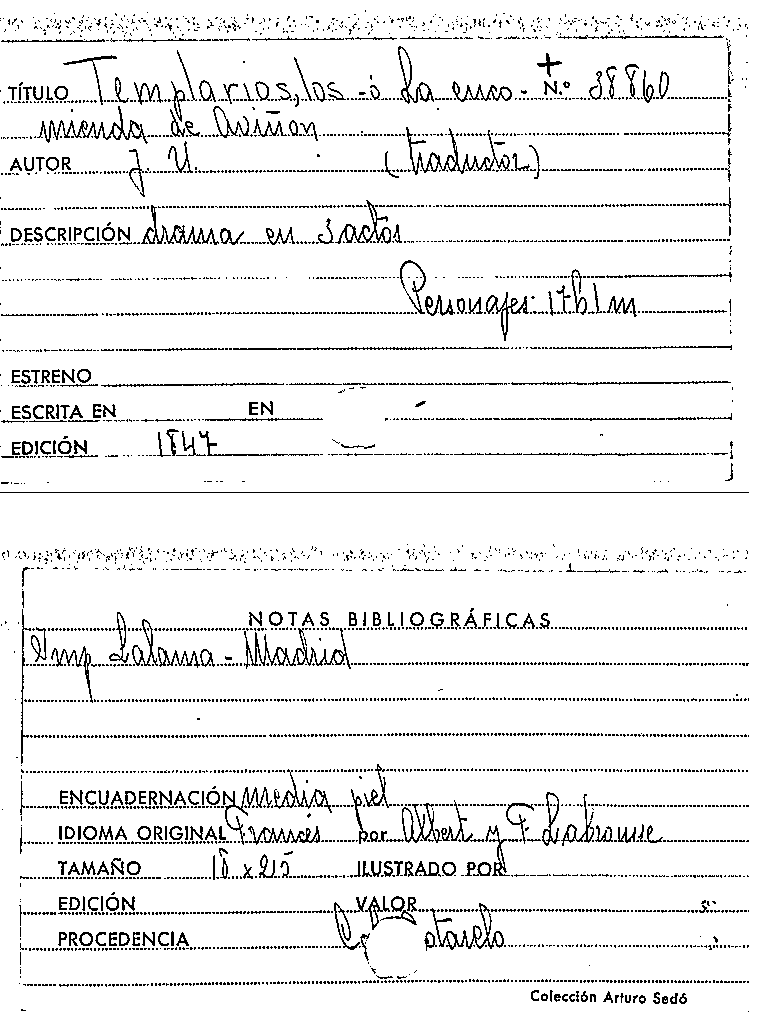 TÍTULO Templarios, los - ó La enco- N.º 38860
mienda de Aviñon
AUTOR J. U. (traductor)
DESCRIPCIÓN drama en 3 actos
Personajes: 17 h 1 m
ESTRENO
ESCRITA EN EN
EDICIÓN 1847
NOTAS BIBLIOGRÁFICAS
Imp Lalama - Madrid
ENCUADERNACIÓN media piel
IDIOMA ORIGINAL Francés por Albert y F. Labrousse
TAMAÑO 15 x 215 ILUSTRADO POR
EDICIÓN VALOR
PROCEDENCIA otarelo
Colección Arturo Sedó